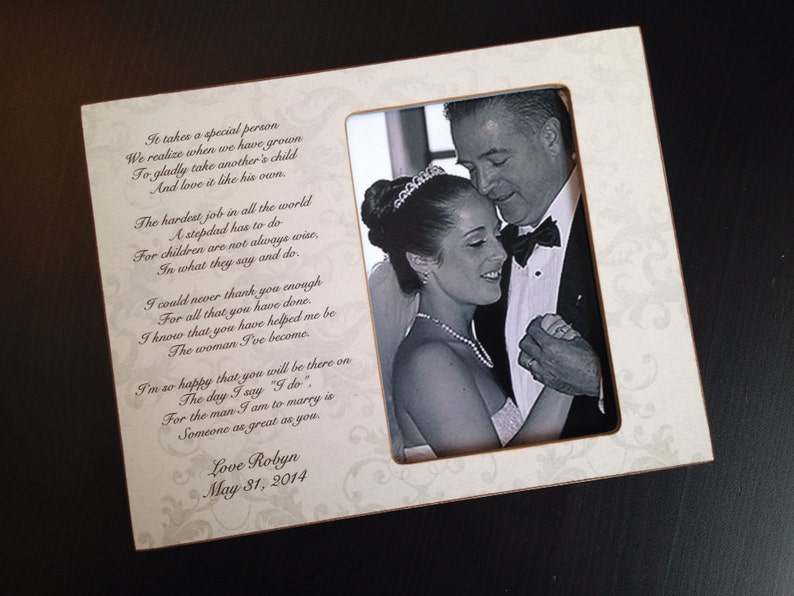 It takes a special person
We realize when we have grown
To gladly take another's child
And love it like his own.
The hardest job in all the world
A stepdad has to do
For children are not always wise,
In what they say and do.
I could never thank you enough
For all that you have done.
I know that you have helped me be
The woman I've become.
I'm so happy that you will be there on
The day I say "I do",
For the man I am to marry is
Someone as great as you.
Love Robyn
May 31, 2014